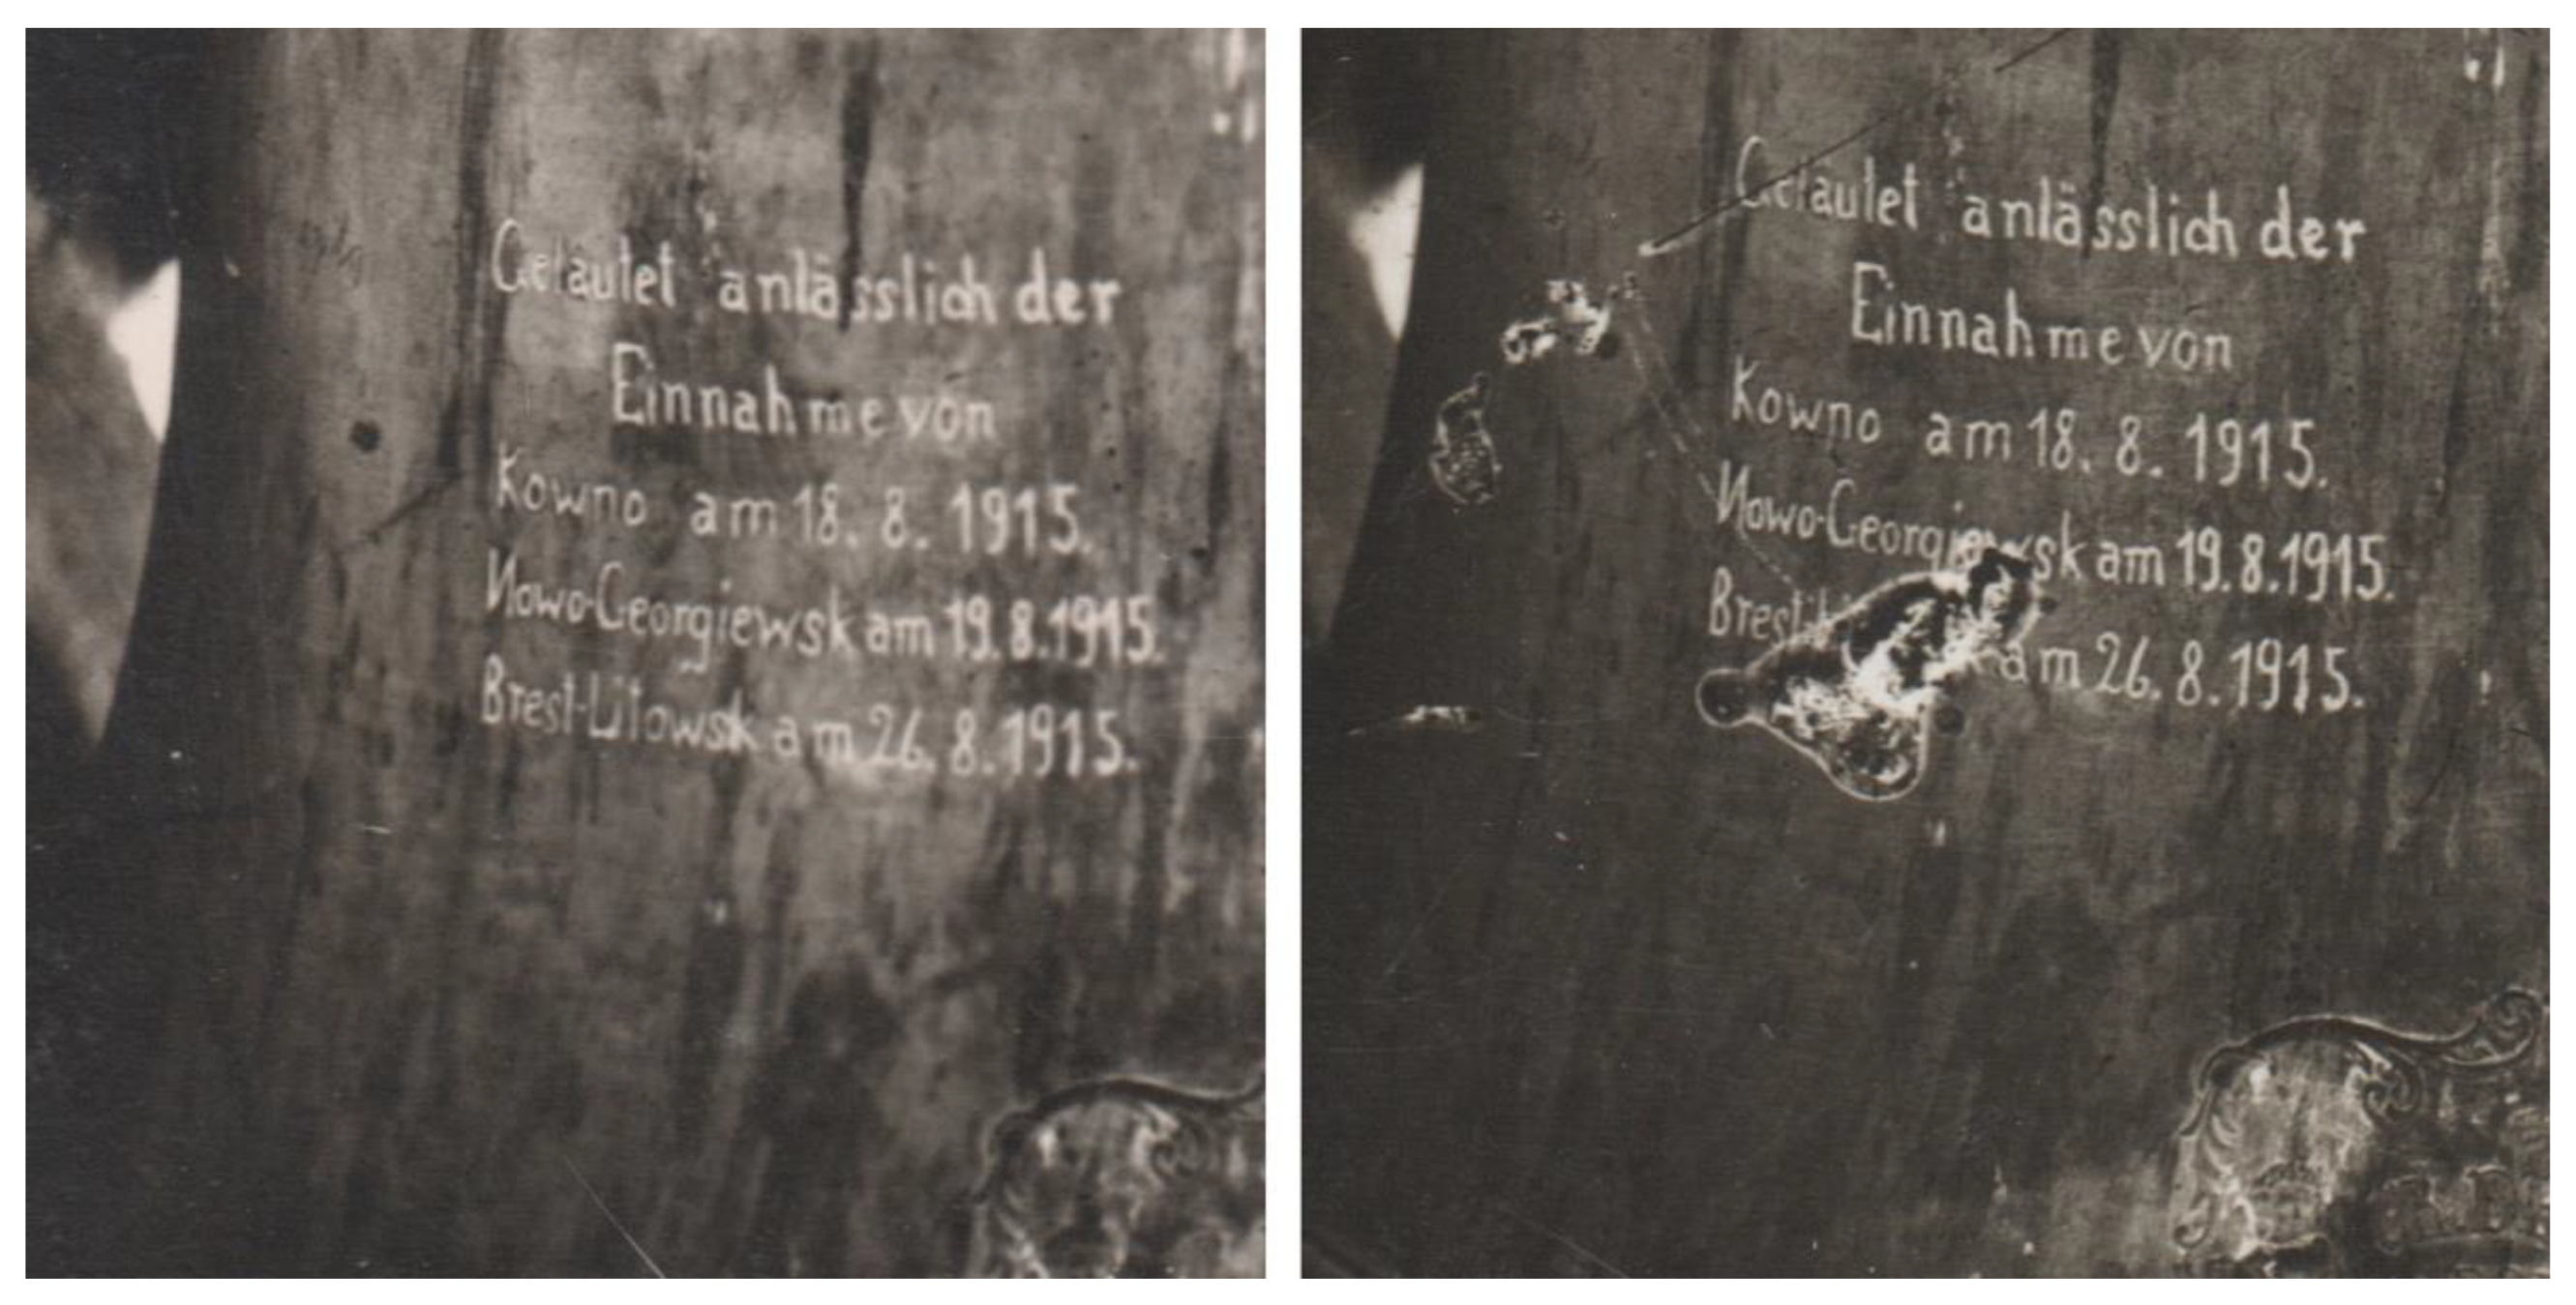 Geläutet anlässlich der
Einnahme von
Kowno am 18. 8. 1915.
Nowo-Georgiewsk am 19.8.1915.
Brest-Litowsk am 26.8.1915.
Geläutet anlässlich der
Einnahme von
Kowno am 18. 8. 1915.
Nowo-Georgiewsk am 19.8.1915.
am 26.8.1915.